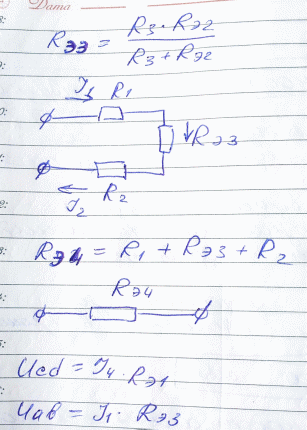 Dama
Rээ = R3 · Rэ2 / R3 + Rэ2
I3 R1
Rэ3
R2
I2
Rэ4 = R1 + Rэ3 + R2
Rэ4
Ucd = I4 · Rэ1
Uab = I1 · Rэ3